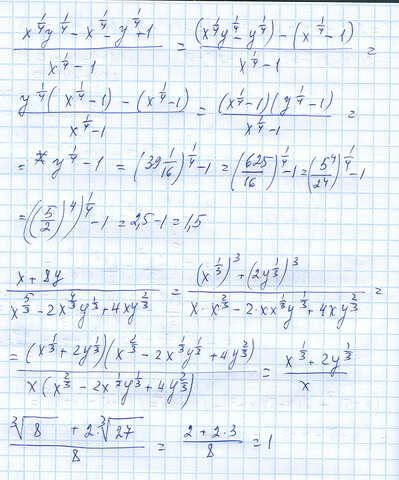 (x^(1/4)y^(1/4) - x^(1/4) - y^(1/4) + 1)/(x^(1/4) - 1) = ((x^(1/4)y^(1/4) - y^(1/4)) - (x^(1/4) - 1))/(x^(1/4) - 1) =
(y^(1/4)(x^(1/4) - 1) - (x^(1/4) - 1))/(x^(1/4) - 1) = ((x^(1/4) - 1)(y^(1/4) - 1))/(x^(1/4) - 1) =
= y^(1/4) - 1 = (39 1/16)^(1/4) - 1 = (625/16)^(1/4) - 1 = (5^4/2^4)^(1/4) - 1
= ((5/2)^4)^(1/4) - 1 = 2,5 - 1 = 1,5
(x + 8y)/(x^(5/3) - 2x^(4/3)y^(1/3) + 4xy^(2/3)) = ((x^(1/3))^3 + (2y^(1/3))^3)/(x·x^(2/3) - 2·x x^(1/3)y^(1/3) + 4xy^(2/3)) =
= ((x^(1/3) + 2y^(1/3))(x^(2/3) - 2x^(1/3)y^(1/3) + 4y^(2/3)))/(x(x^(2/3) - 2x^(1/3)y^(1/3) + 4y^(2/3))) = (x^(1/3) + 2y^(1/3))/x
(∛8 + 2∛27)/8 = (2 + 2·3)/8 = 1